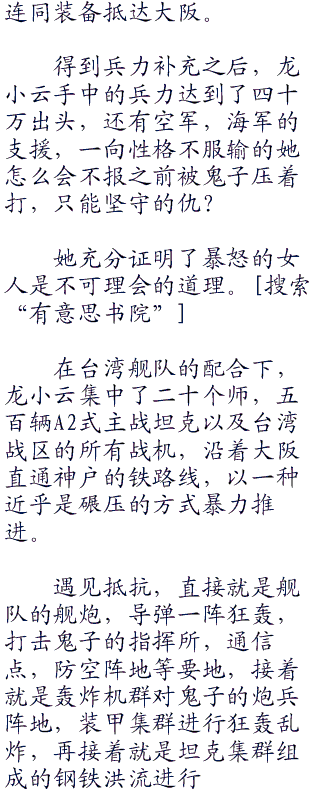 连同装备抵达大阪。
得到兵力补充之后，龙
小云手中的兵力达到了四十
万出头，还有空军，海军的
支援，一向性格不服输的她
怎么会不报之前被鬼子压着
打，只能坚守的仇？
她充分证明了暴怒的女
人是不可理会的道理。[搜索
“有意思书院”]
在台湾舰队的配合下，
龙小云集中了二十个师，五
百辆A2式主战坦克以及台湾
战区的所有战机，沿着大阪
直通神户的铁路线，以一种
近乎是碾压的方式暴力推
进。
遇见抵抗，直接就是舰
队的舰炮，导弹一阵狂轰，
打击鬼子的指挥所，通信
点，防空阵地等要地，接着
就是轰炸机群对鬼子的炮兵
阵地，装甲集群进行狂轰乱
炸，再接着就是坦克集群组
成的钢铁洪流进行